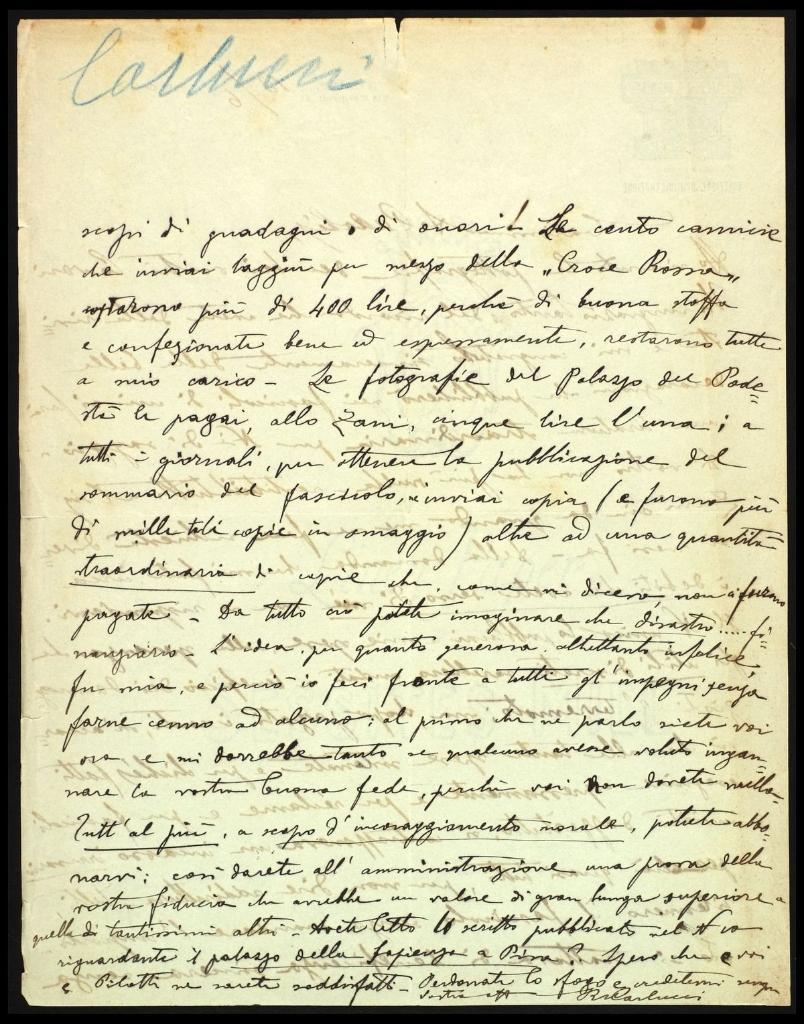 Carlucci
scopi di guadagni o di onori! Le cento camicie
che inviai laggiù per mezzo della „Croce Rossa„
costarono più di 400 lire, perché di buona stoffa
e confezionate bene ed espressamente, restarono tutte
a mio carico – Le fotografie del Palazzo del Pode=
stà le pagai, allo Zani, cinque lire l'una; a
tutti i giornali, per ottenere la pubblicazione del
sommario del fascicolo, ne inviai copia (e furono più
di mille tali copie in omaggio) oltre ad una quantità
straordinaria di copie che, come vi dicevo, non furono
pagate – Da tutto ciò potete imaginare che disastro..... fi=
nanziario – L'idea, per quanto generosa altrettanto infelice,
fu mia, e perciò io feci fronte a tutti gl'impegni senza
farne cenno ad alcuno: il primo che ne parlo siete voi
ora e mi dorrebbe tanto se qualcuno avesse voluto ingan=
nare la vostra buona fede, perché voi non dovete nulla.
Tutt'al più, a scopo d'incoraggiamento morale, potete abbo=
narvi; così darete all'amministrazione una prova della
vostra fiducia che avrebbe un valore di gran lunga superiore a
quella di tantissimi altri – Avete letto lo scritto pubblicato nel N
riguardante il palazzo della Sapienza a Pisa? Spero che voi
e Pilotti ne sarete soddisfatti – Perdonate lo sfogo e credetemi sempre
Vostro aff
R. Carlucci